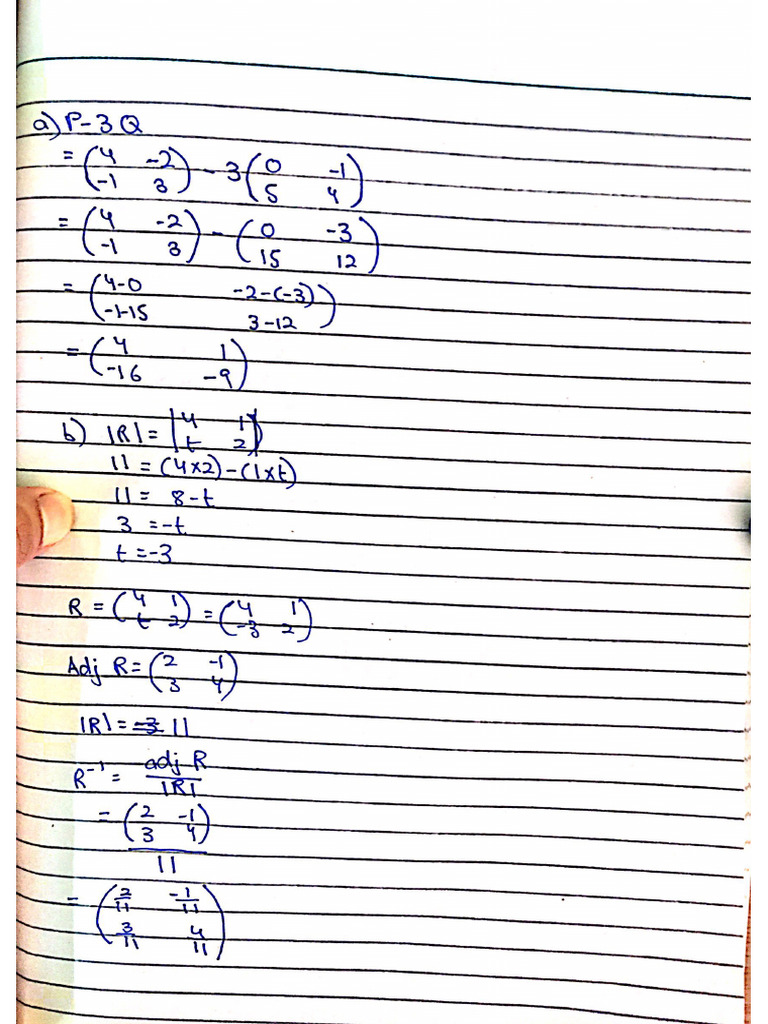 a) P-3Q
= (4 -2
-1 3) - 3(0 -1
5 4)
= (4 -2
-1 3) - (0 -3
15 12)
= (4-0 -2-(-3)
-1-15 3-12)
= (4 1
-16 -9)
b) |R| = |4 1
t 2|
11 = (4×2)-(1×t)
11 = 8-t
3 = -t
t = -3
R = (4 1
t 2) = (4 1
-3 2)
Adj R = (2 -1
3 4)
|R| = -3 11
R⁻¹ = adj R
|R|
= (2 -1
3 4)
11
= (2/11 -1/11
3/11 4/11)